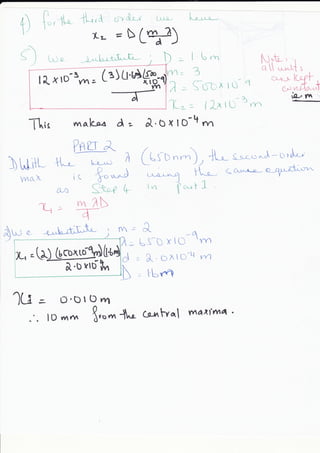 4) for the third order we have
x₂ = D(mλ/d)
5) we substitute ; D = 1.6m
m = 3
λ = 500x10⁻⁹
x₂ = 12x10⁻³m
12 x10⁻³m = (3)(1.6m)(500 x10⁻⁹m)/d
Note: all units are kept constant
i.e. m
This makes d = 2.0x10⁻⁴m
PART 2
1) With the new λ (650nm), the second-order
max is found using the same equation
as Step 4 in Part 1.
x₁ = mλD/d
2) we substitute ; m = 2
λ = 650x10⁻⁹m
d = 2.0x10⁻⁴m
D = 1.6m
x₁ = (2)(650x10⁻⁹m)(1.6m)/2.0x10⁻⁴m
x₁ = 0.010m
∴ 10mm from the central maxima.